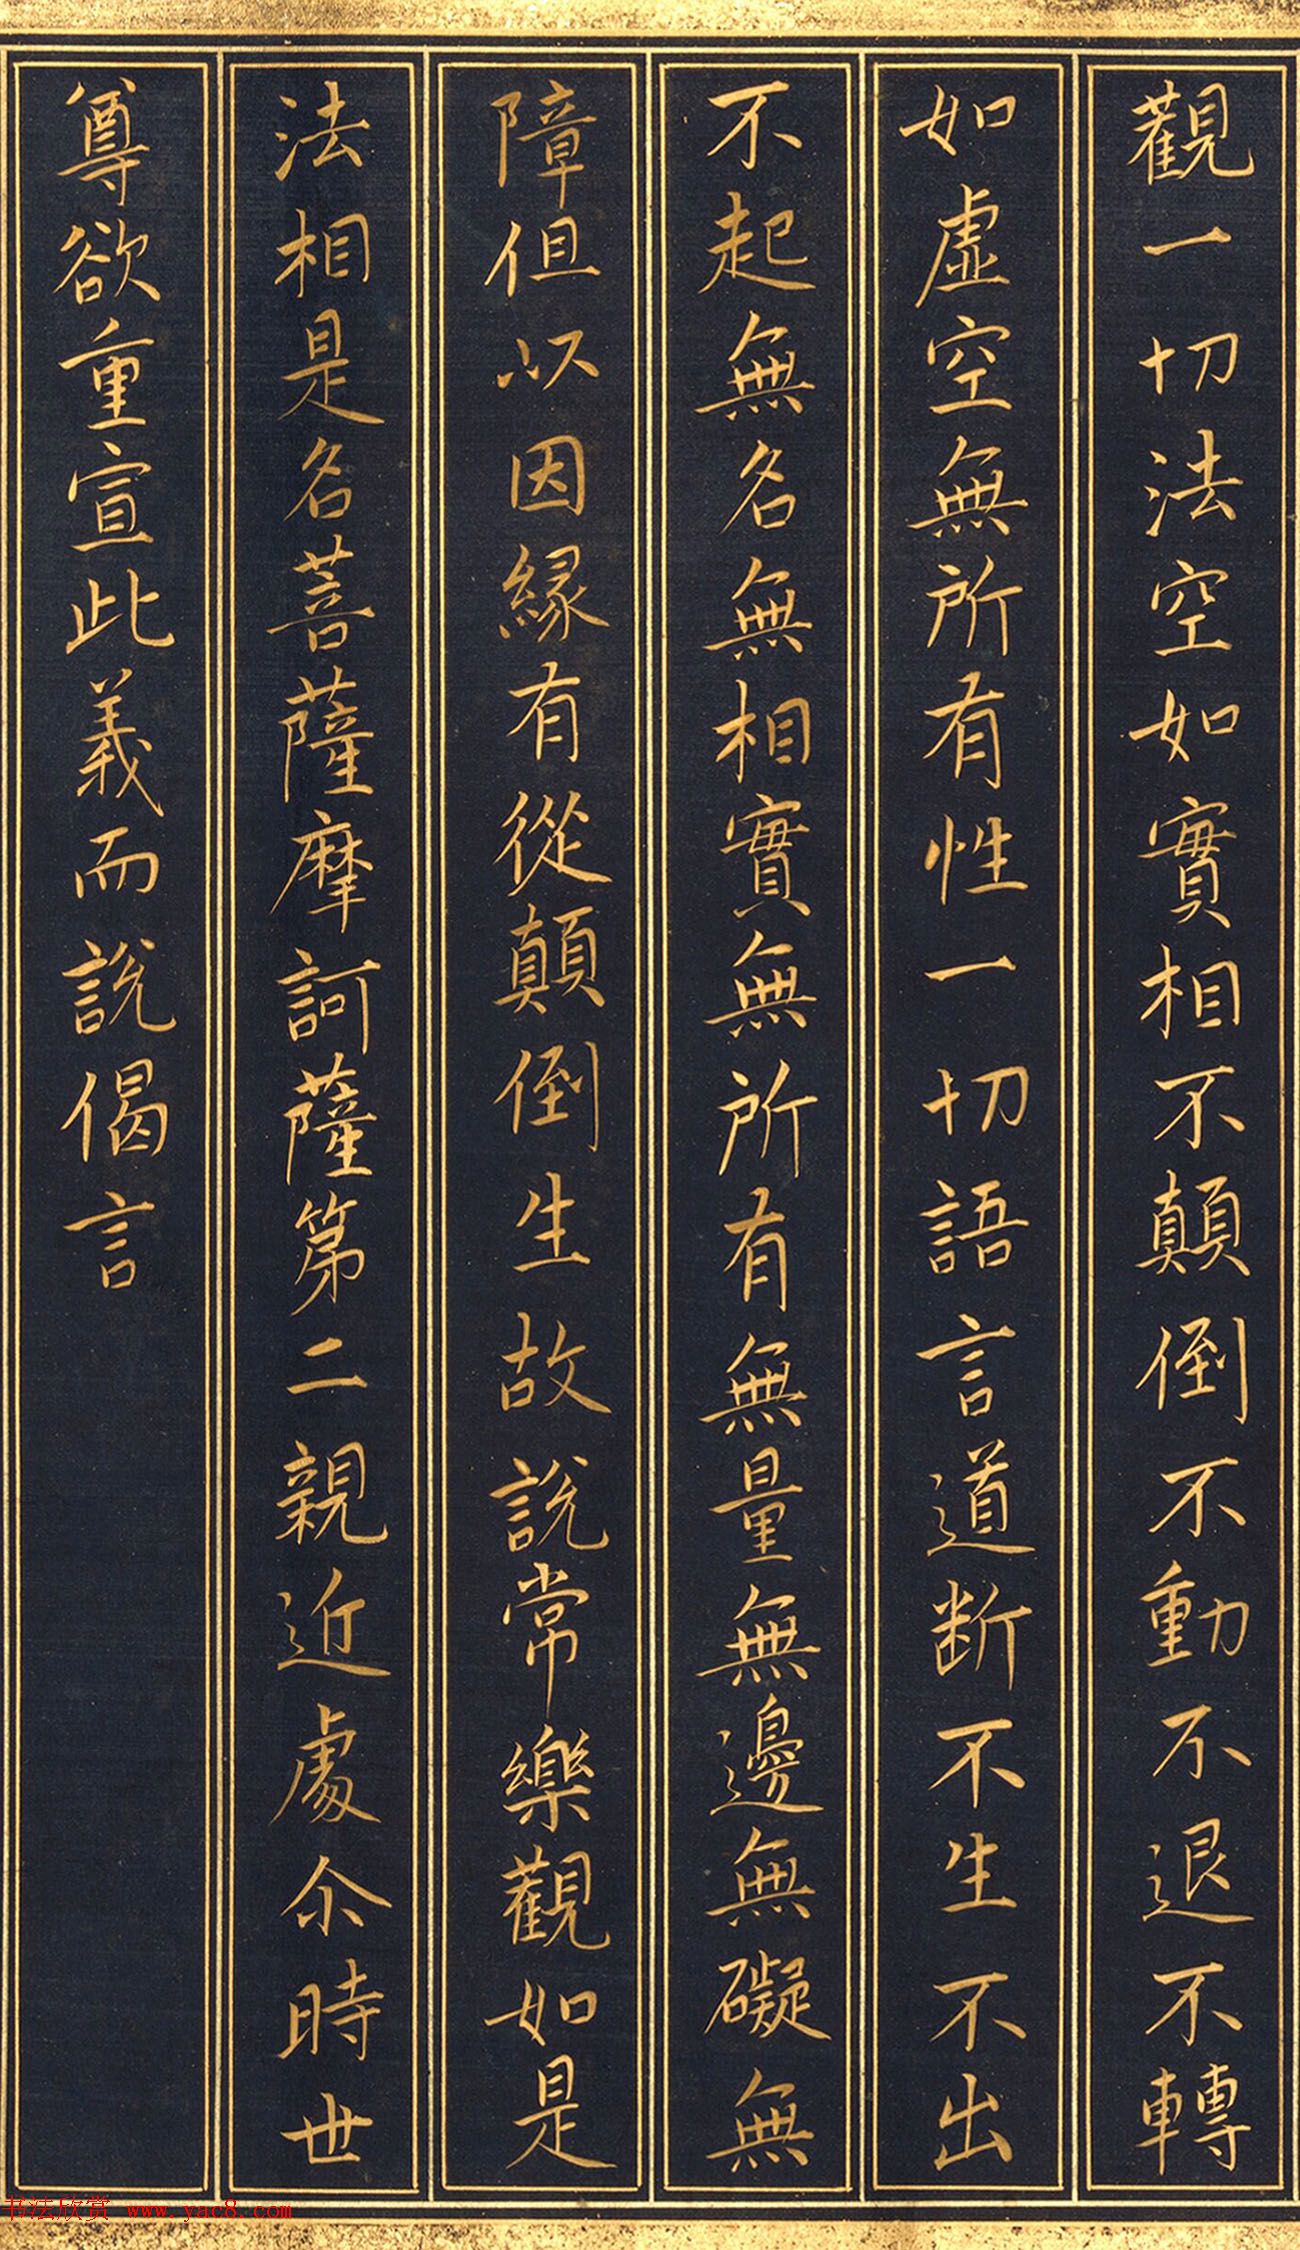 觀一切法空如實相不顛倒不動不退不轉
如虛空無所有性一切語言道断不生不出
不起無名無相實無所有無量無邊無礙無
障但以因緣有從顛倒生故說常樂觀如是
法相是名菩薩摩訶薩第二親近處尒時世
尊欲重宣此義而說偈言
书法欣赏 www.yac8.com